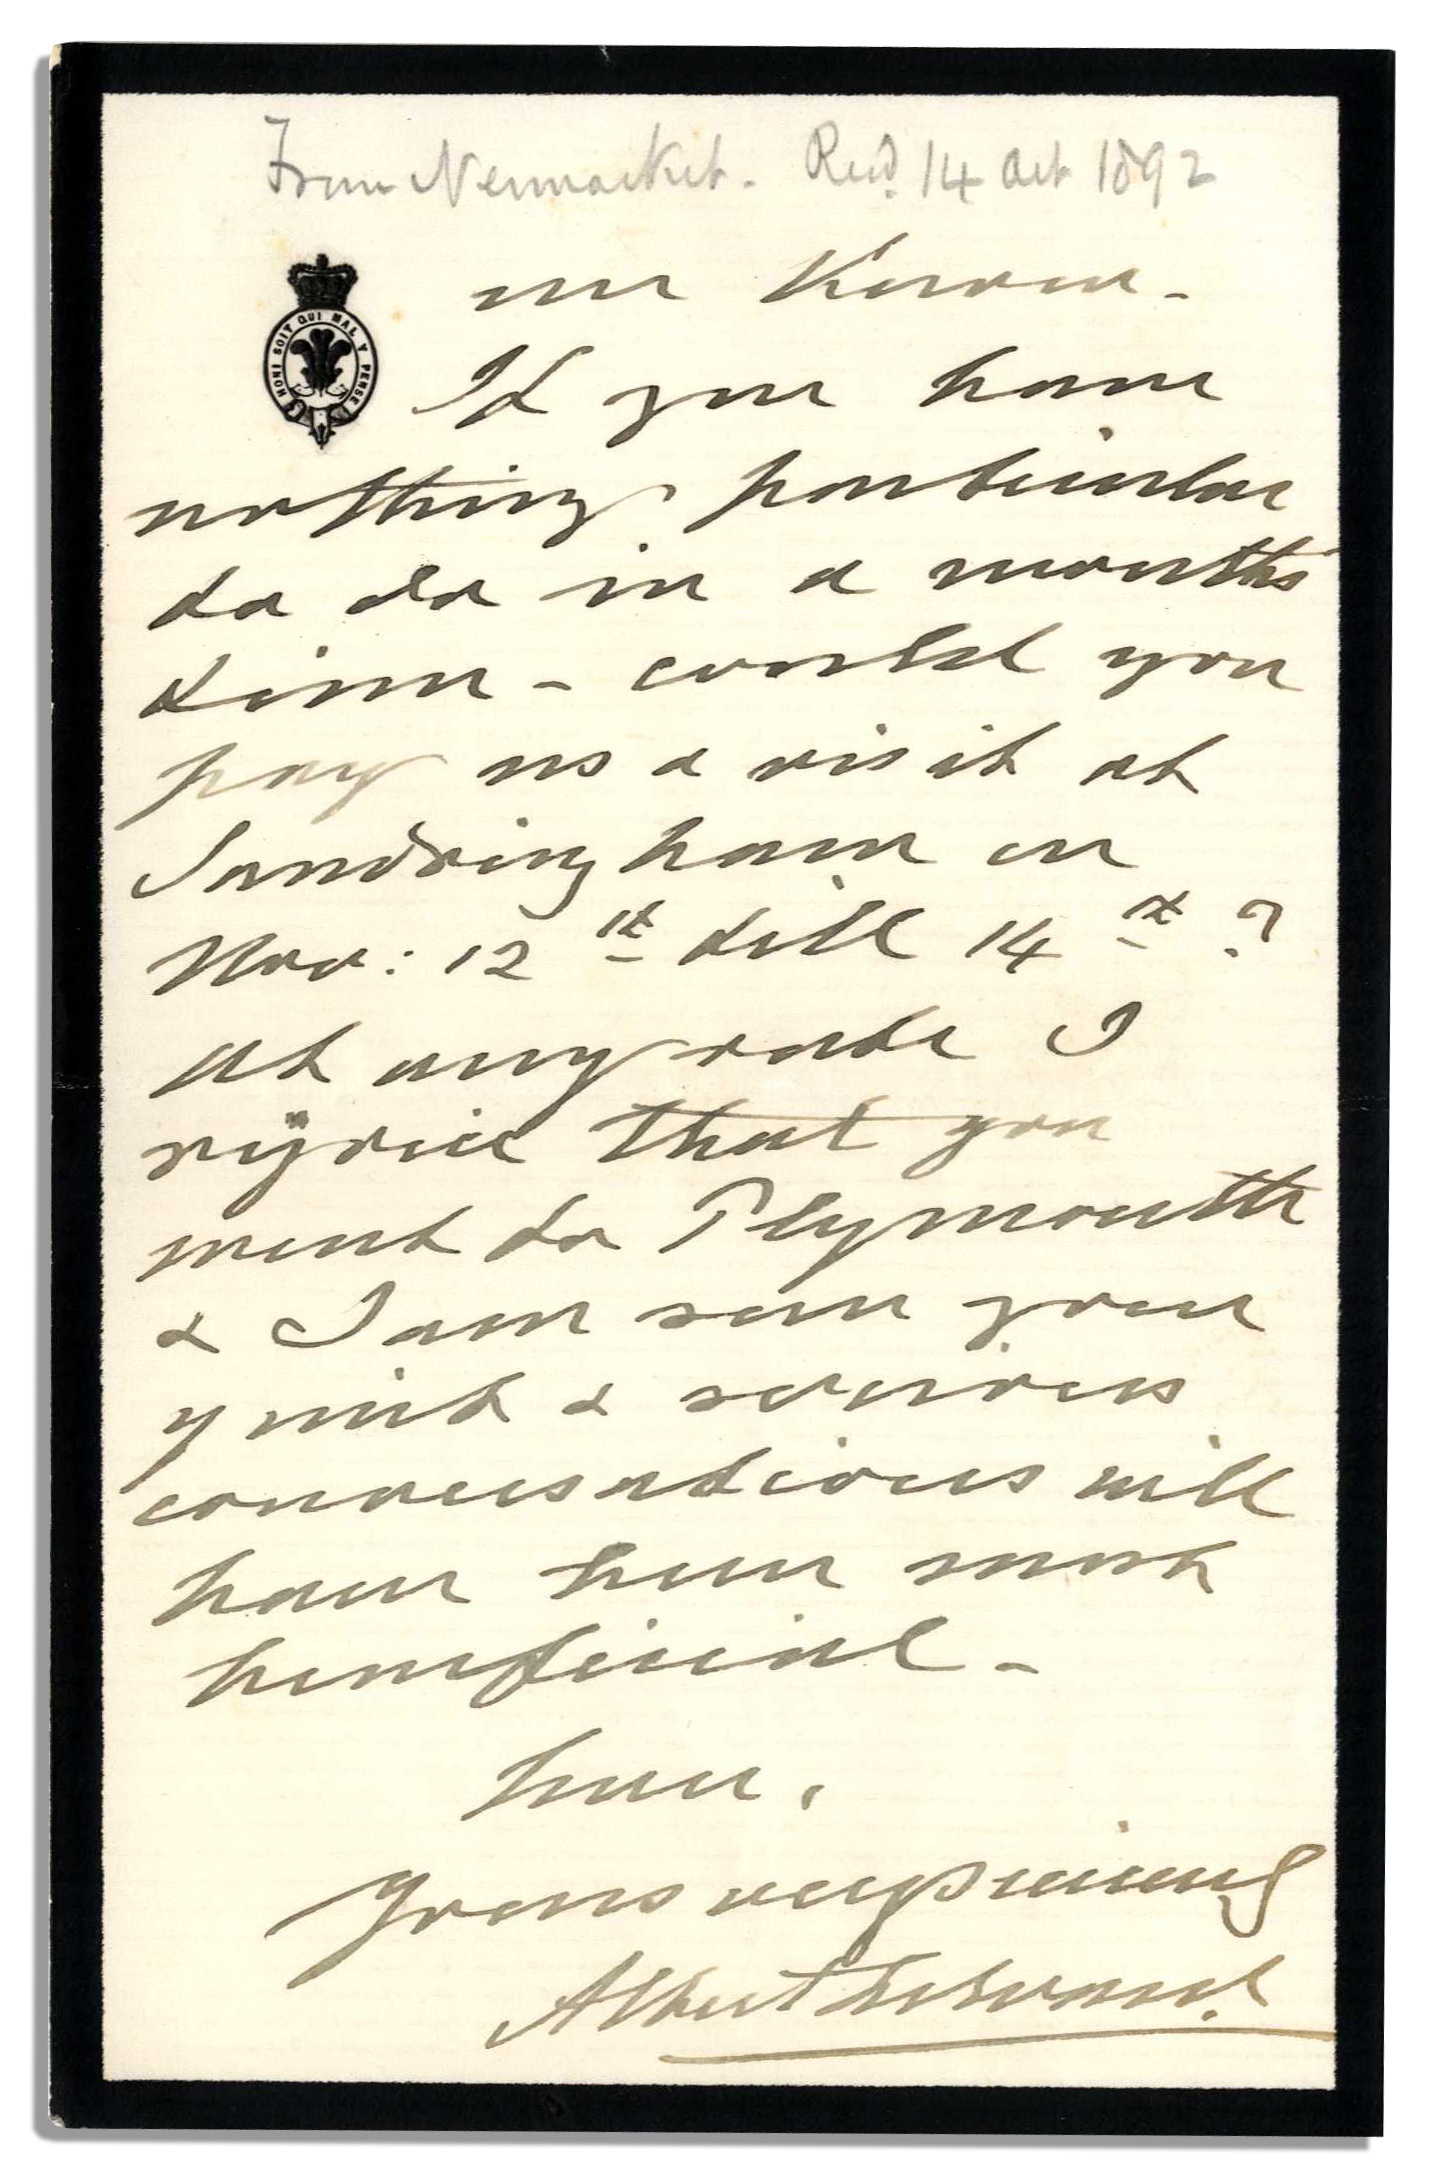 From Newmarket. Recd. 14 Oct 1892
HONI SOIT QUI MAL Y PENSE
If you have
nothing particular
to do in a months
time - could you
pay us a visit at
Sandringham on
Nov: 12th till 14th?
At any rate I
rejoice that you
went to Plymouth
& I am sure your
quiet & serious
conversations will
have been most
beneficial -
Yours very sincerely
Albert Edward.